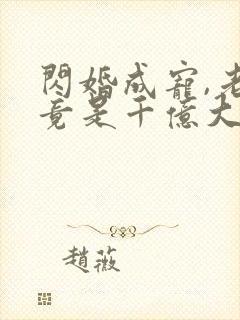 閃婚成寵,老
竟是千億大
趙薇